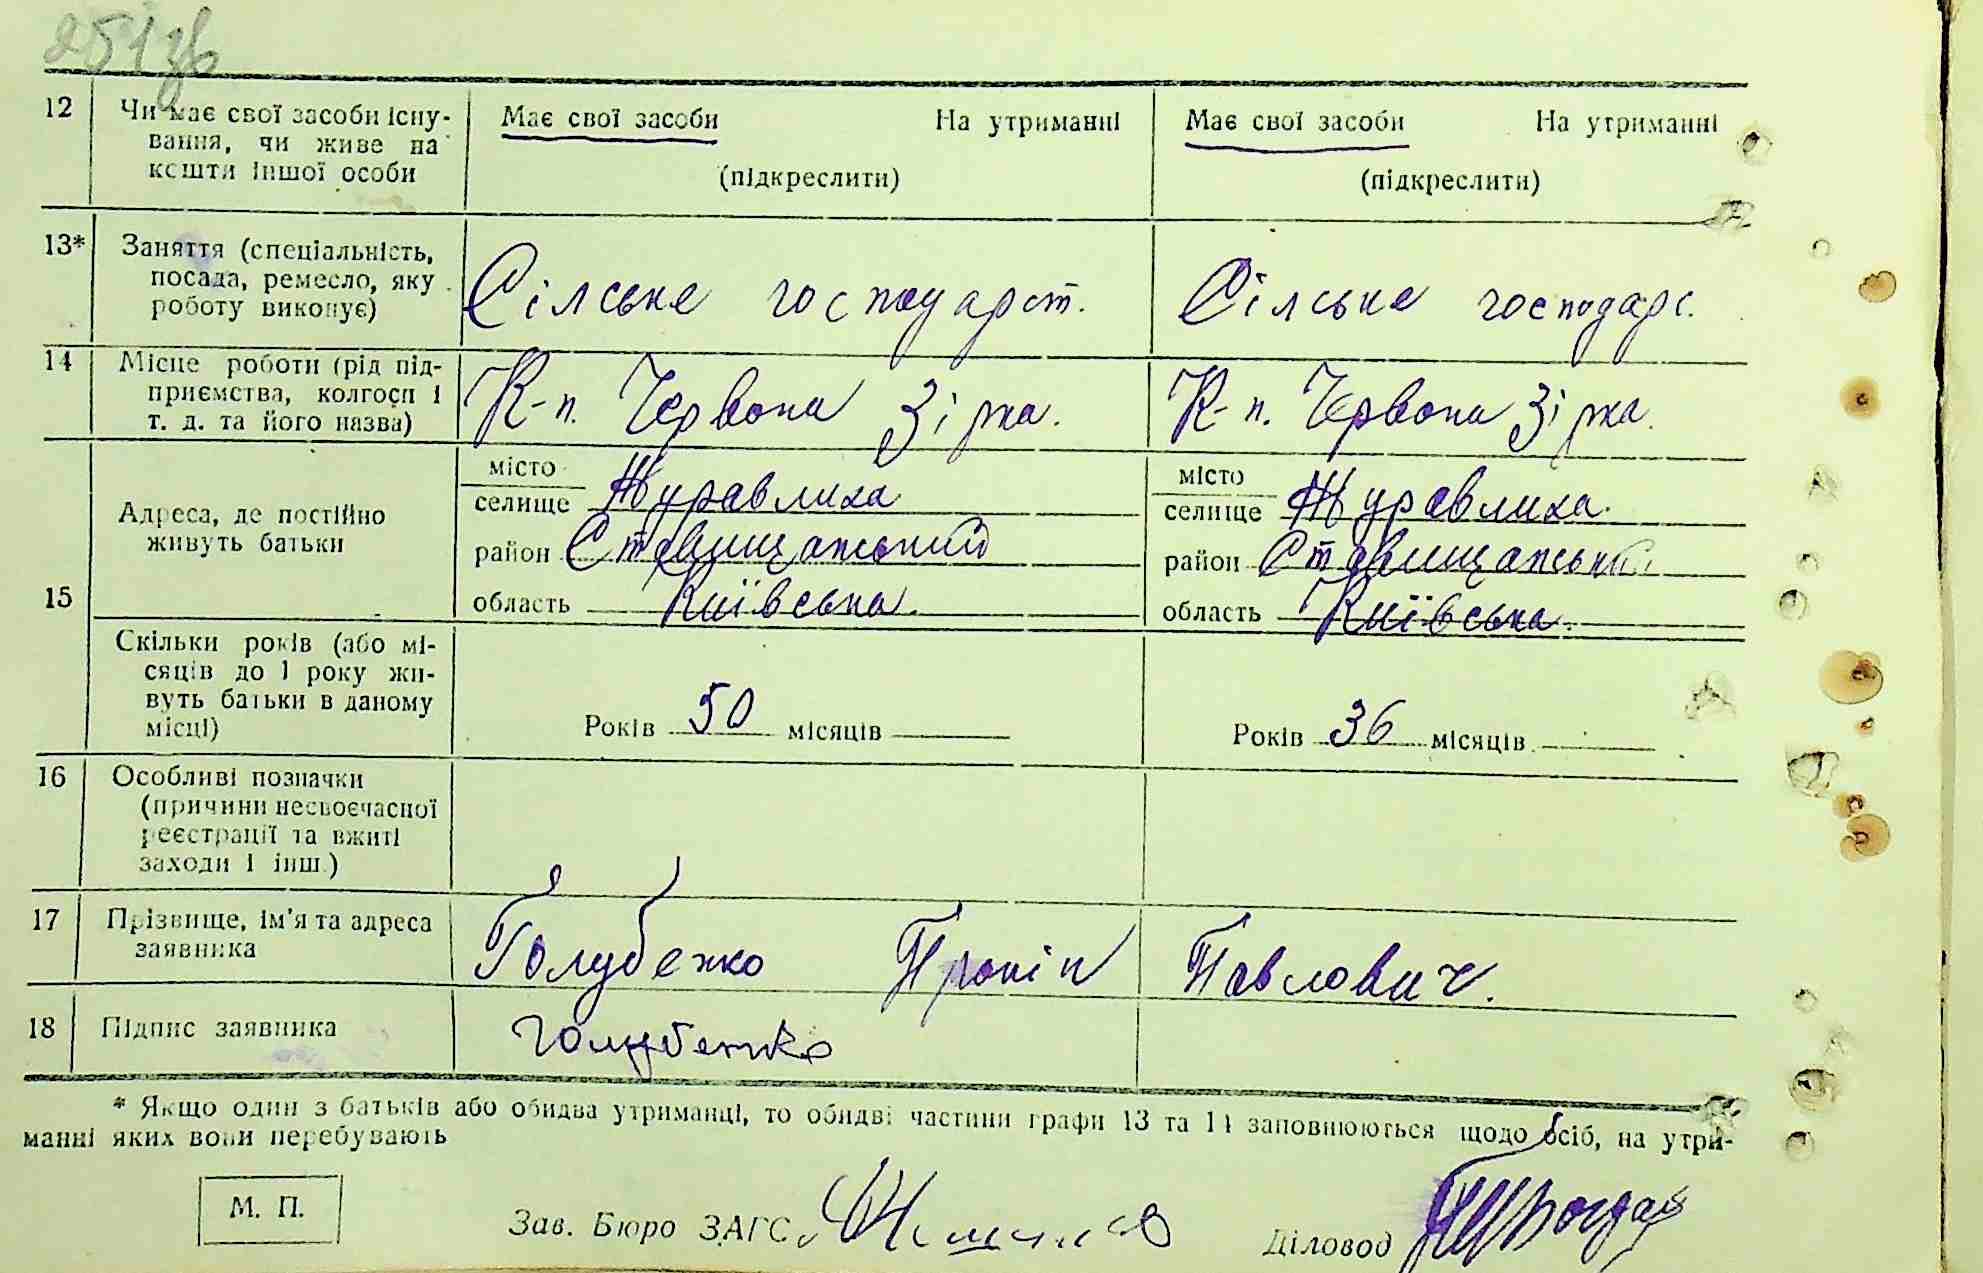 251зв
12 Чи має свої засоби існу-
вання, чи живе на
кошти іншої особи
Має свої засоби На утриманні
(підкреслити)
Має свої засоби На утриманні
(підкреслити)
13* Заняття (спеціальність,
посада, ремесло, яку
роботу виконує)
Сілське господарст.
Сілське господарс.
14 Місце роботи (рід під-
приємства, колгосп і
т. д. та його назва)
К-п. Червона Зірка.
К-п. Червона Зірка.
15 Адреса, де постійно
живуть батьки
місто
селище Журавлиха
район Ставищанський
область Київська.
місто
селище Журавлиха.
район Ставищанський
область Київська.
Скільки років (або мі-
сяців до 1 року жи-
вуть батьки в даному
місці)
Років 50 місяців
Років 36 місяців
16 Особливі позначки
(причини несвоєчасної
реєстрації та вжиті
заходи і інш.)
17 Прізвище, ім'я та адреса
заявника
Голубенко Прокіп Павлович.
18 Підпис заявника
Голубенко
* Якщо один з батьків або обидва утриманці, то обидві частини графи 13 та 14 заповнюються щодо осіб, на утри-
манні яких вони перебувають
М. П.
Зав. Бюро ЗАГС
Діловод